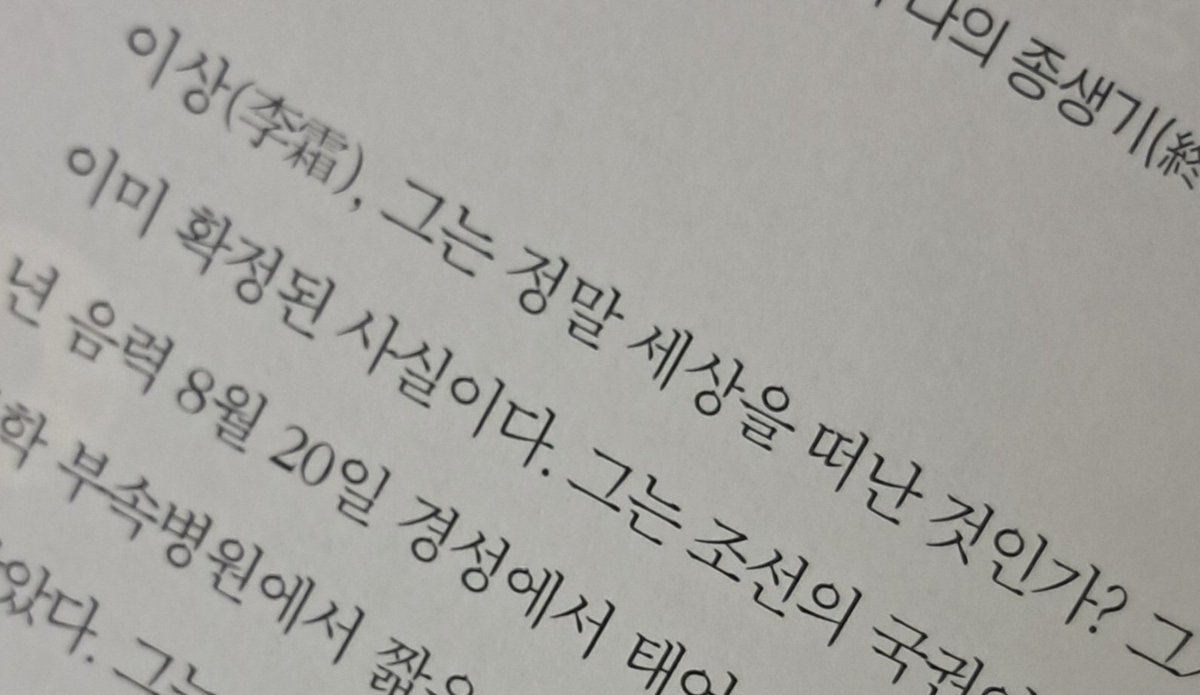 나의 종생기(終
이상(李霜), 그는 정말 세상을 떠난 것인가? 그
이미 확정된 사실이다. 그는 조선의 국권이
년 음력 8월 20일 경성에서 태어
학 부속병원에서 짧은
았다. 그는